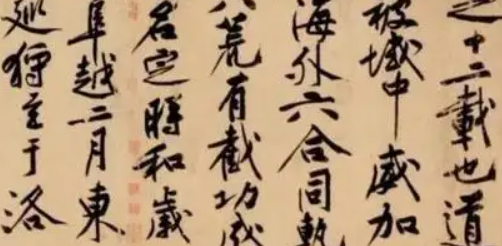 之十二載也道
被域中威加
海外六合同軌
八荒有截功成
名定時和歲
阜越二月東
巡狩至于洛